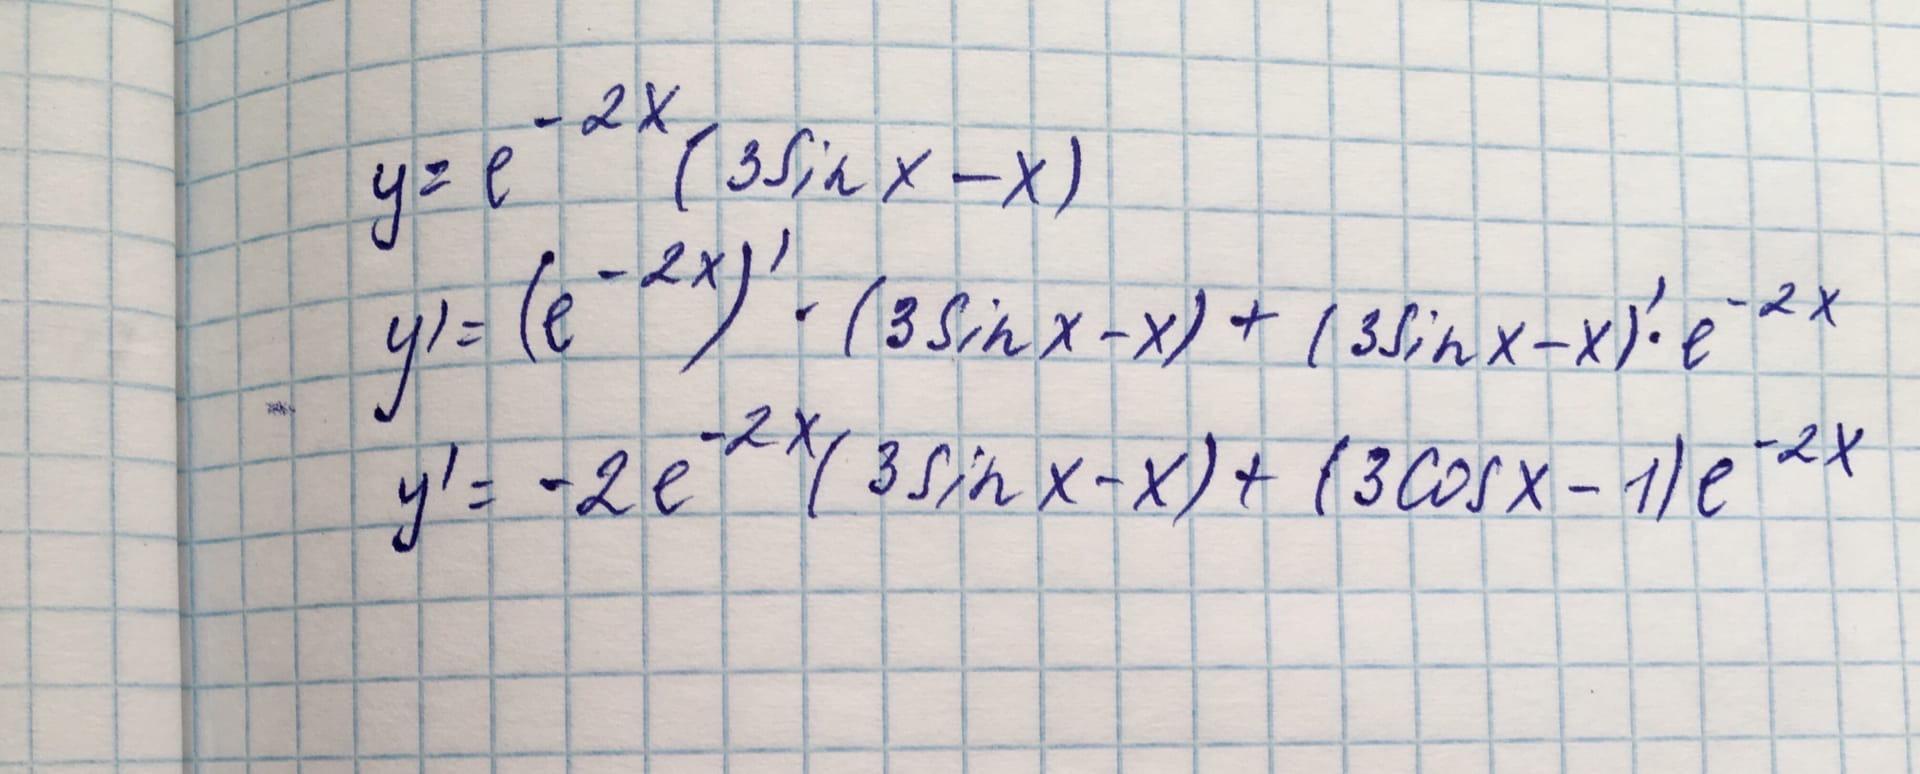 y = e^{-2x} (3sin x - x)
y' = (e^{-2x})' · (3sin x - x) + (3sin x - x)' · e^{-2x}
y' = -2e^{-2x} (3sin x - x) + (3cos x - 1) e^{-2x}